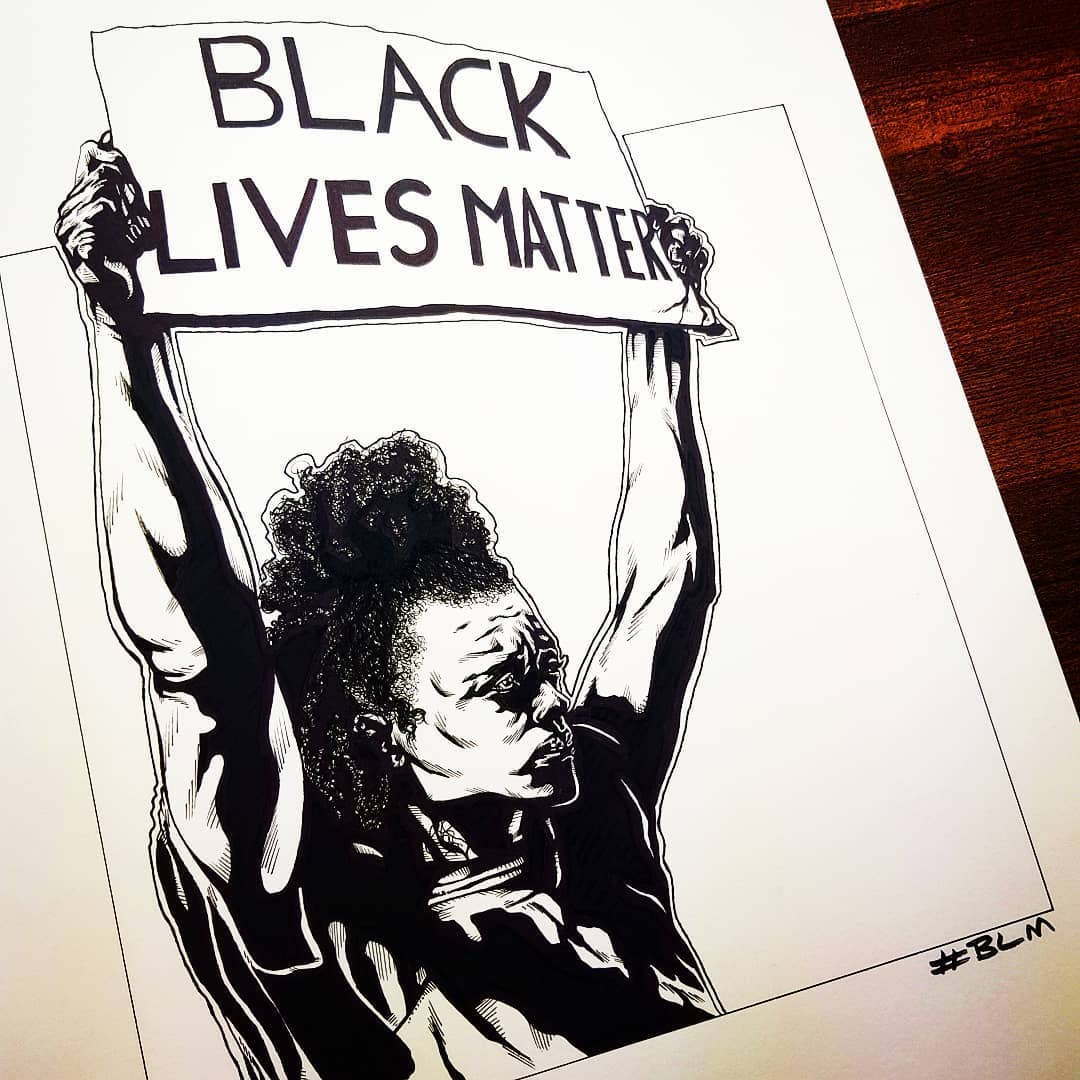 BLACK
LIVES MATTER
#BLM